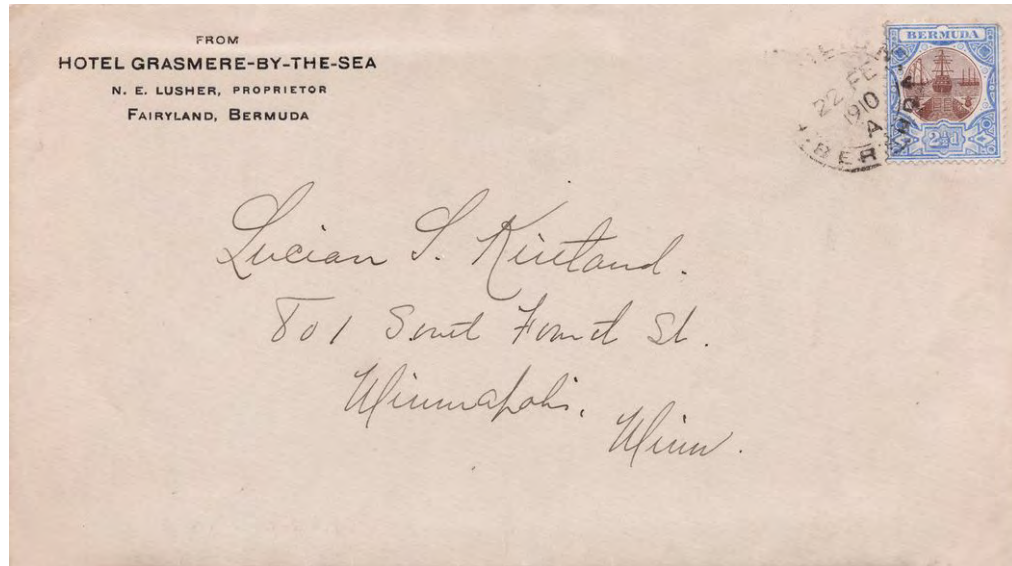 FROM
HOTEL GRASMERE-BY-THE-SEA
N. E. LUSHER, PROPRIETOR
FAIRYLAND, BERMUDA
BERMUDA
22 FE
1910
A
BER
2½d
Lucian S. Kirtland.
801 South Fourth St.
Minneapolis,
Minn.